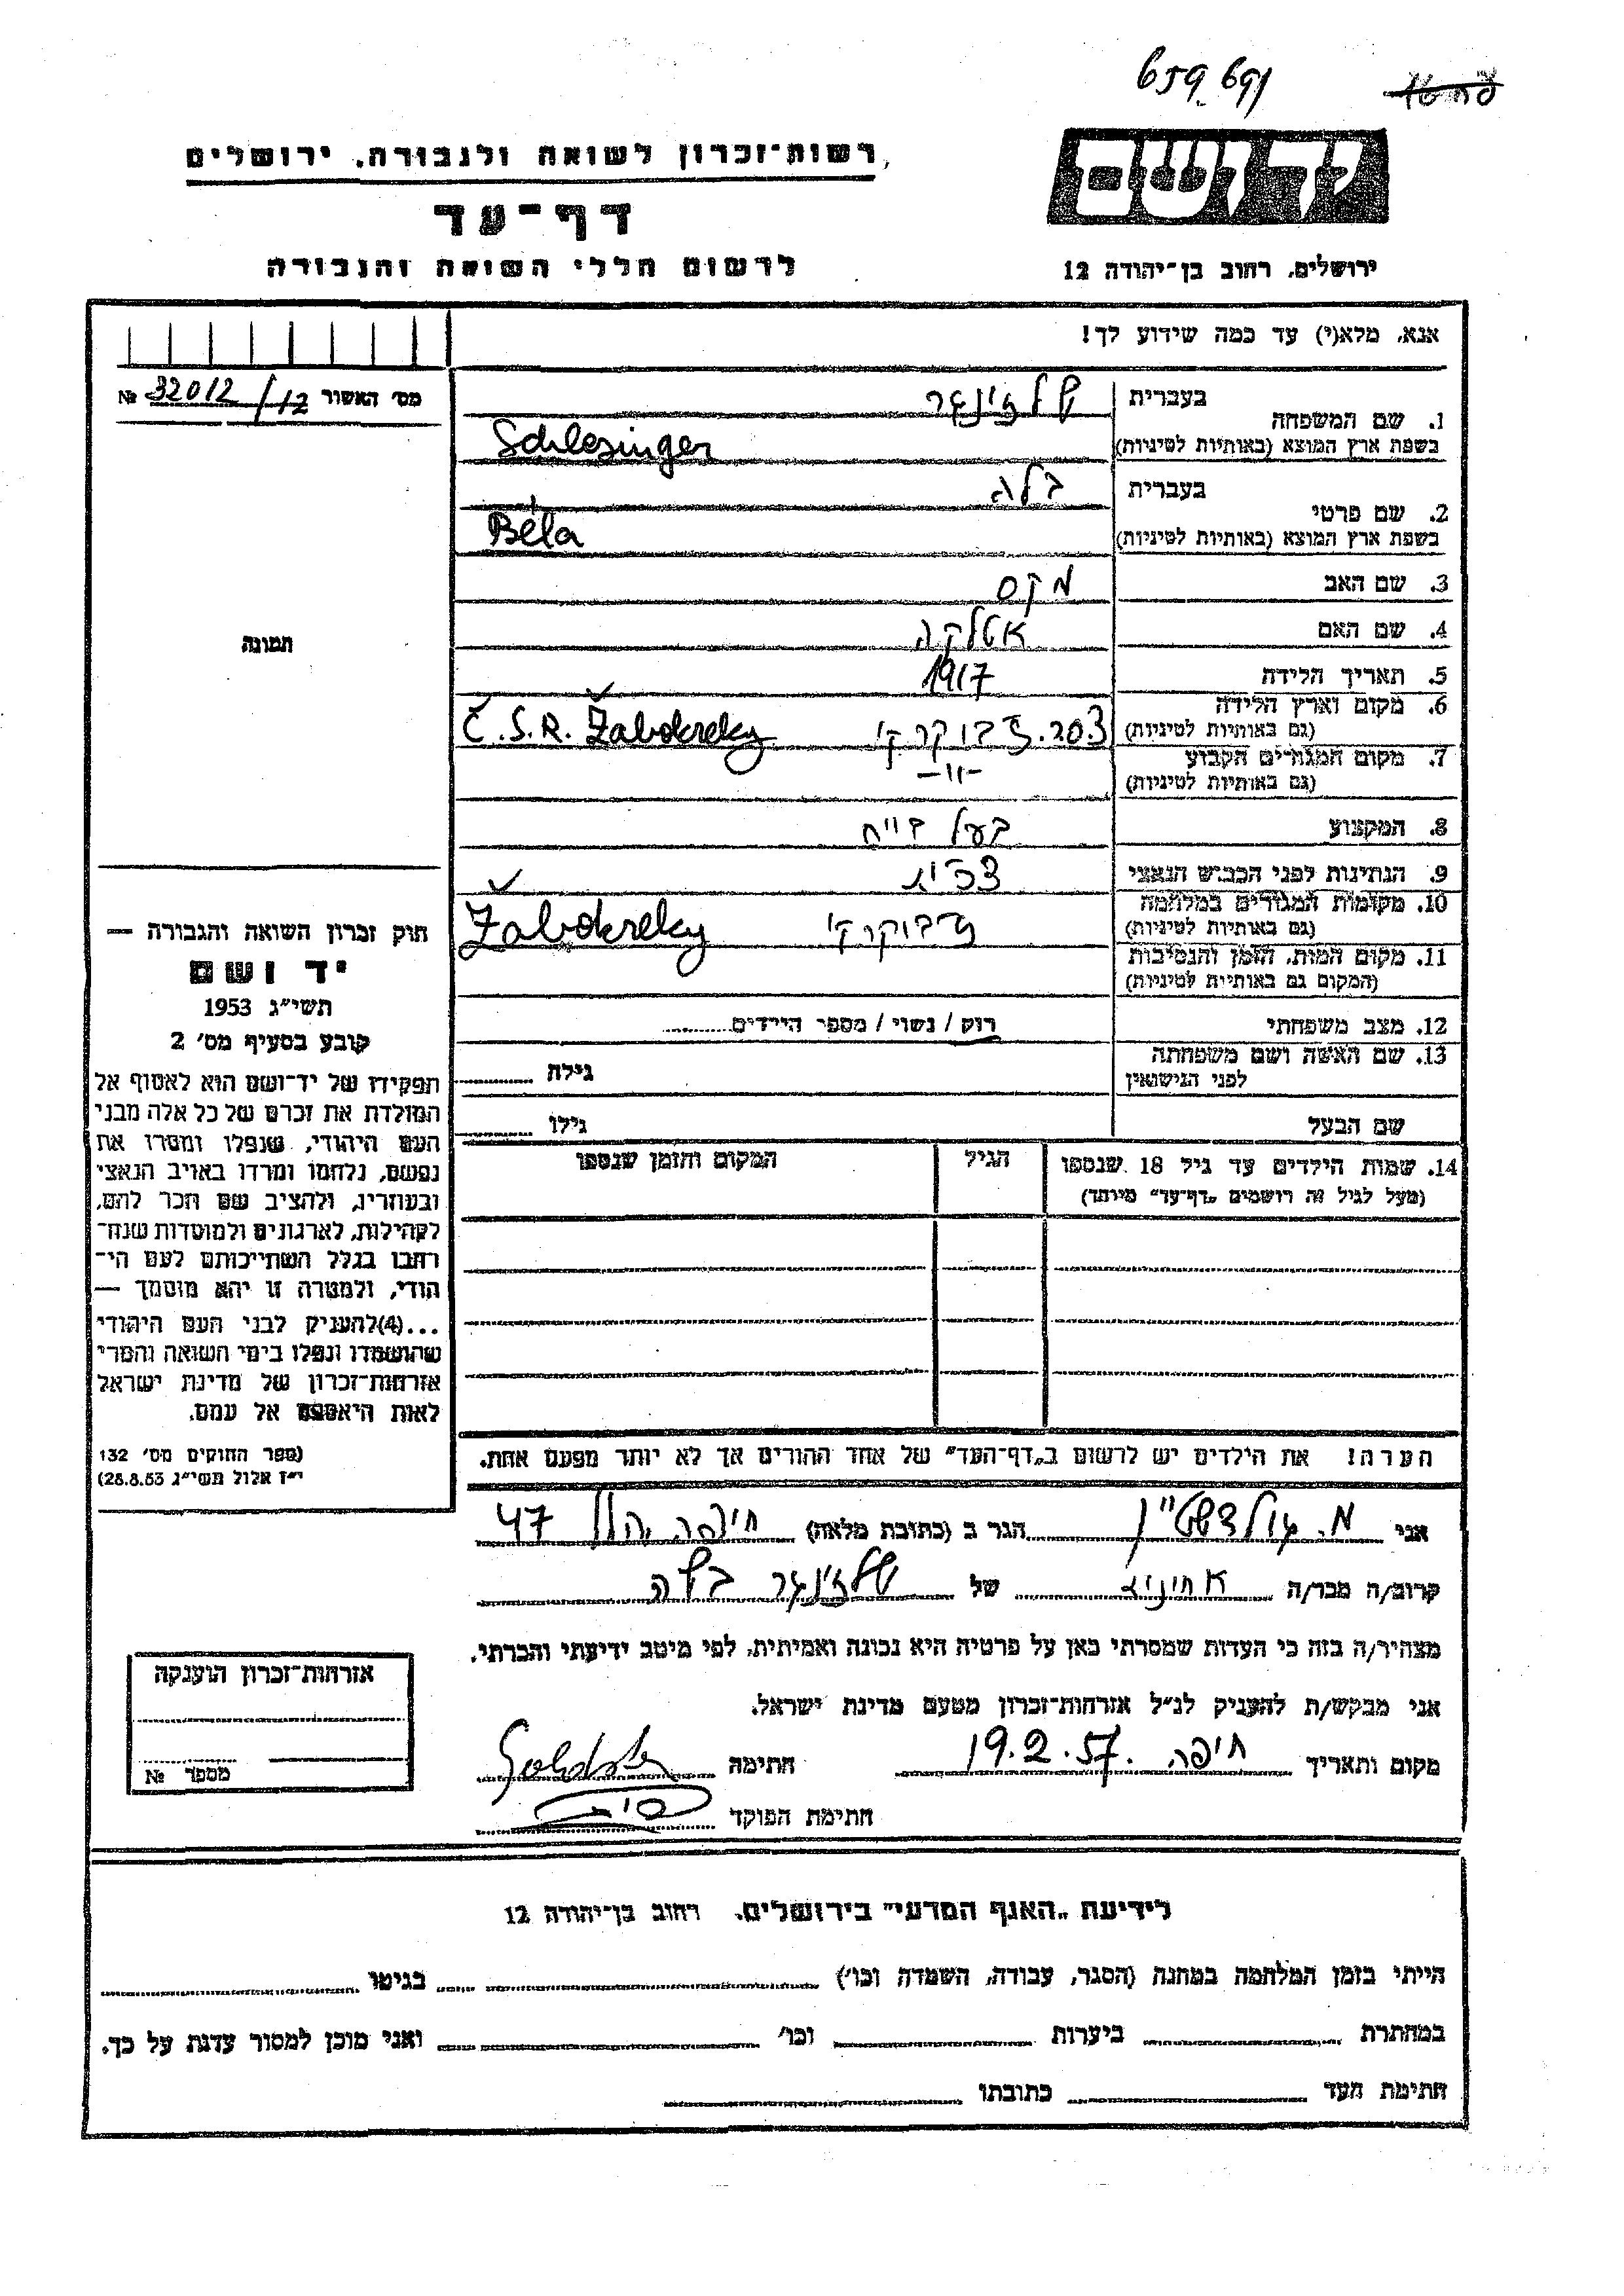 659_691
יד ושם
רשות-זכרון לשואה ולגבורה, ירושלים
דף-עד
ירושלים, רחוב בן-יהודה 12
לרשום חללי השואה והגבורה
אנא, מלא(י) עד כמה שידוע לך!
מס' האשור 32012/12 №
1. שם המשפחה
בעברית שלזינגר
בשפת ארץ המוצא (באותיות לטיניות) Schlesinger
2. שם פרטי
בעברית בלה
בשפת ארץ המוצא (באותיות לטיניות) Béla
3. שם האב מקס
4. שם האם אטלקה
5. תאריך הלידה 1917
6. מקום וארץ הלידה
(גם באותיות לטיניות) צ.ס.ר. ז'בוקרקי Č.S.R. Žabokreky
7. מקום המגורים הקבוע -"-
(גם באותיות לטיניות)
8. המקצוע
9. הנתינות לפני הכבוש הנאצי צ'כית
10. מקומות המגורים במלחמה
(גם באותיות לטיניות) ז'בוקרקי Žabokreky
11. מקום המות, הזמן והנסיבות
(המקום גם באותיות לטיניות)
12. מצב משפחתי רוק / נשוי / מספר הילדים
13. שם האשה ושם משפחתה
לפני הנישואין גילה
שם הבעל גילו
14. שמות הילדים עד גיל 18 שנספו הגיל המקום והזמן שנספו
(מעל לגיל זה רושמים „דף-עד" מיוחד)
הערה! את הילדים יש לרשום ב„דף-העד" של אחד ההורים אך לא יותר מפעם אחת.
תמונה
חוק זכרון השואה והגבורה —
יד ושם
תשי"ג 1953
קובע בסעיף מס' 2
תפקידו של יד-ושם הוא לאסוף אל
המולדת את זכרם של כל אלה מבני
העם היהודי, שנפלו ומסרו את
נפשם, נלחמו ומרדו באויב הנאצי
ובעוזריו, ולהציב שם וזכר להם,
לקהילות, לארגונים ולמוסדות שנח-
רבו בגלל השתייכותם לעם הי-
הודי, ולמטרה זו יהא מוסמך —
...(4)להעניק לבני העם היהודי
שהושמדו ונפלו בימי השואה והמרי
אזרחות-זכרון של מדינת ישראל
לאות היאספם אל עמם.
(ספר החוקים מס' 132
י"ז אלול תשי"ג 28.8.53)
אני מ. גולדשטיין הגר ב (כתובת מלאה) חיפה 47
קרוב/ה מכר/ה של שלזינגר בלה
מצהיר/ה בזה כי העדות שמסרתי כאן על פרטיה היא נכונה ואמיתית, לפי מיטב ידיעתי והכרתי.
אני מבקש/ת להעניק לנ"ל אזרחות-זכרון מטעם מדינת ישראל.
מקום ותאריך חיפה 19.2.57. חתימה
חתימת הפוקד
אזרחות-זכרון הוענקה
מספר №
לידיעת „האגף המדעי" בירושלים, רחוב בן-יהודה 12
הייתי בזמן המלחמה במחנה (הסגר, עבודה, השמדה וכו') בגיטו
במחתרת ביערות וכו' ואני מוכן למסור עדות על כך.
חתימת העד כתובתו